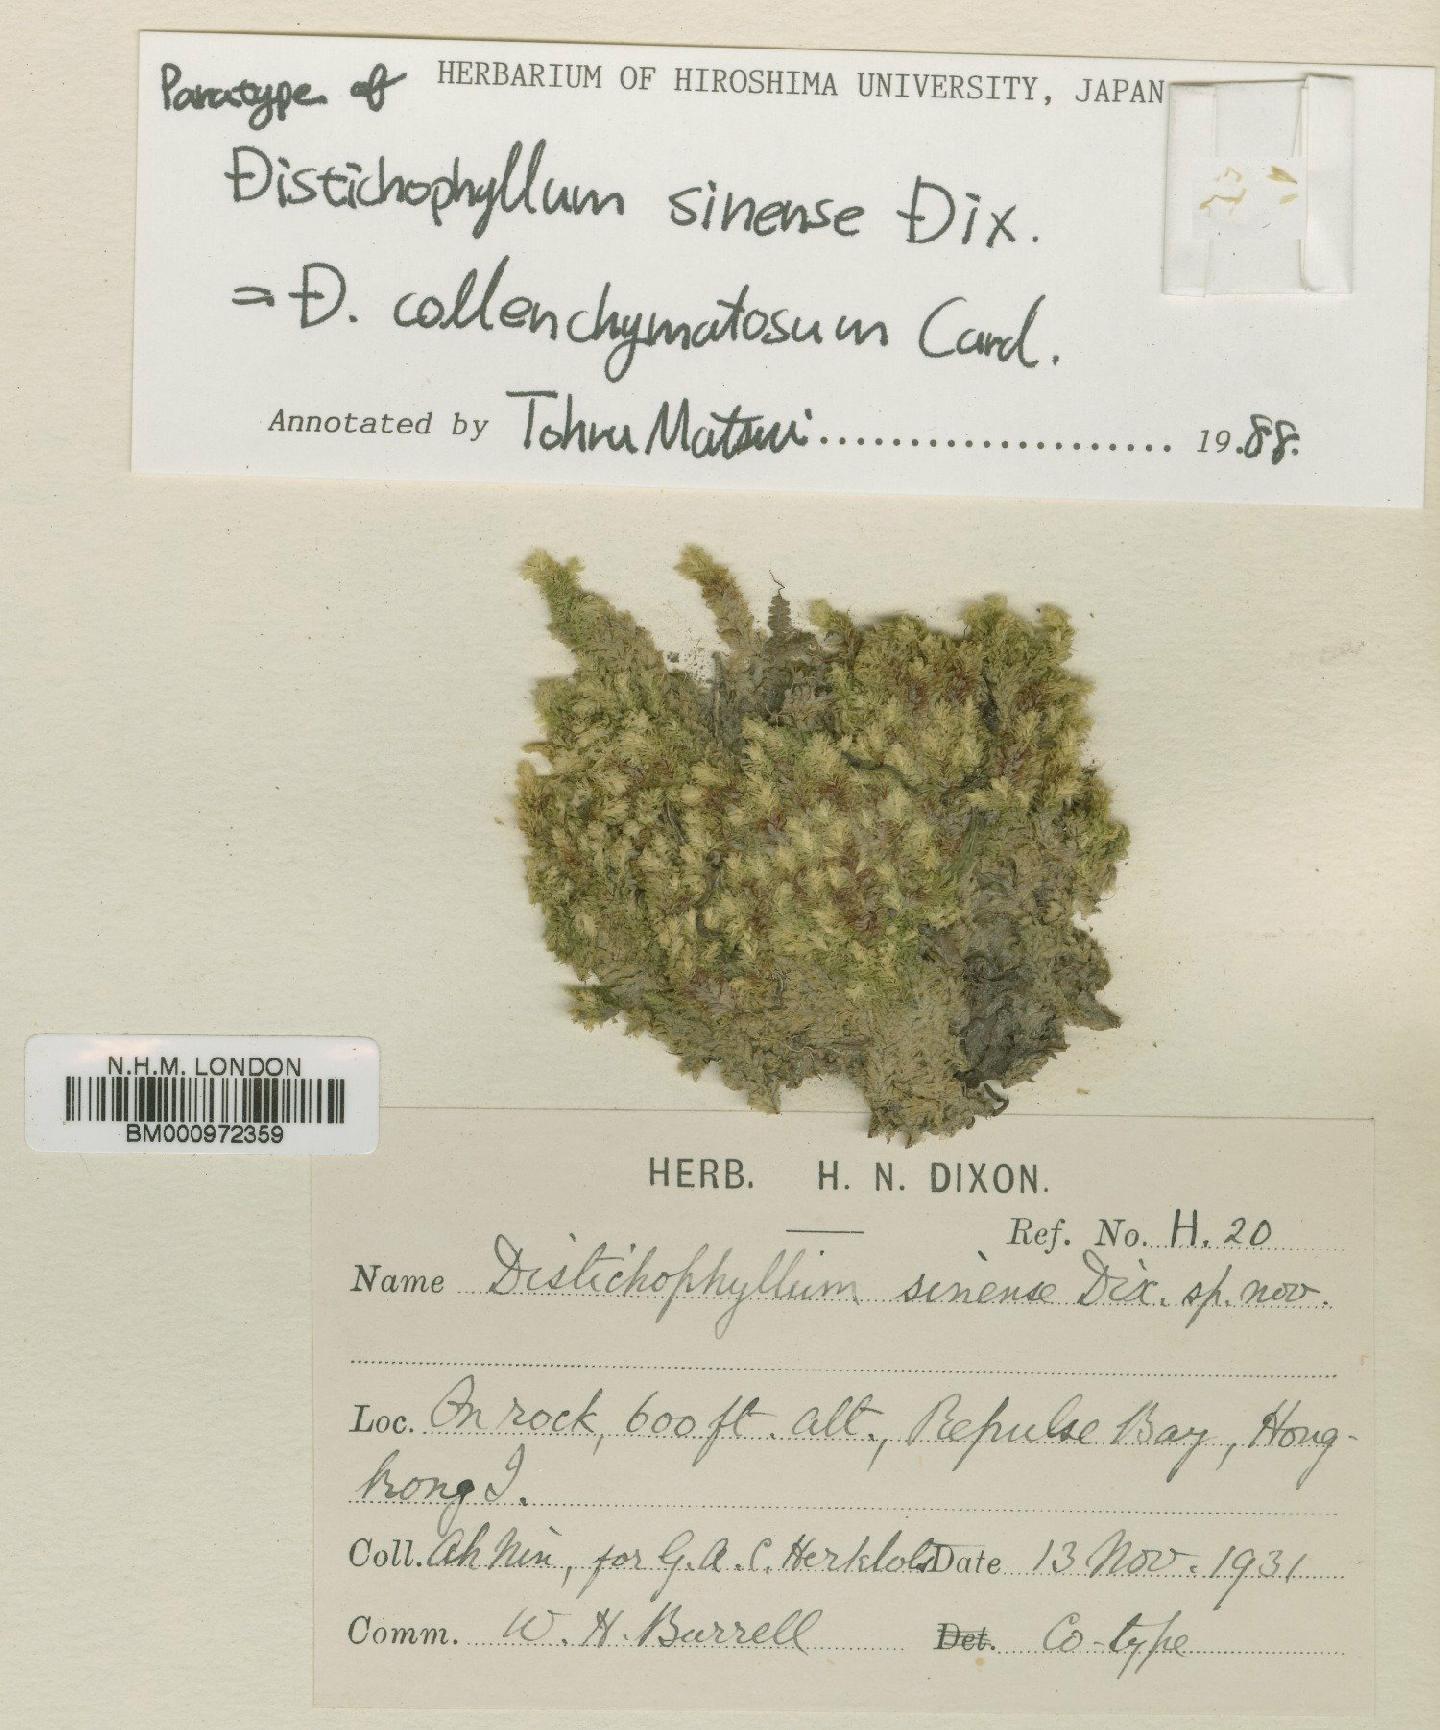 Paratype of HERBARIUM OF HIROSHIMA UNIVERSITY, JAPAN
Distichophyllum sinense Dix.
= D. collenchymatosum Card.
Annotated by Tohru Matsui 19.88.
N.H.M. LONDON
BM000972359
HERB. H. N. DIXON.
Ref. No. H. 20
Name Distichophyllum sinense Dix. sp. nov.
Loc. On rock, 600 ft. alt., Repulse Bay, Hong-
kong I.
Coll. Ah Nin, for G.A.C. Herklots Date 13 Nov. 1931
Comm. W. H. Burrell Det. Co-type